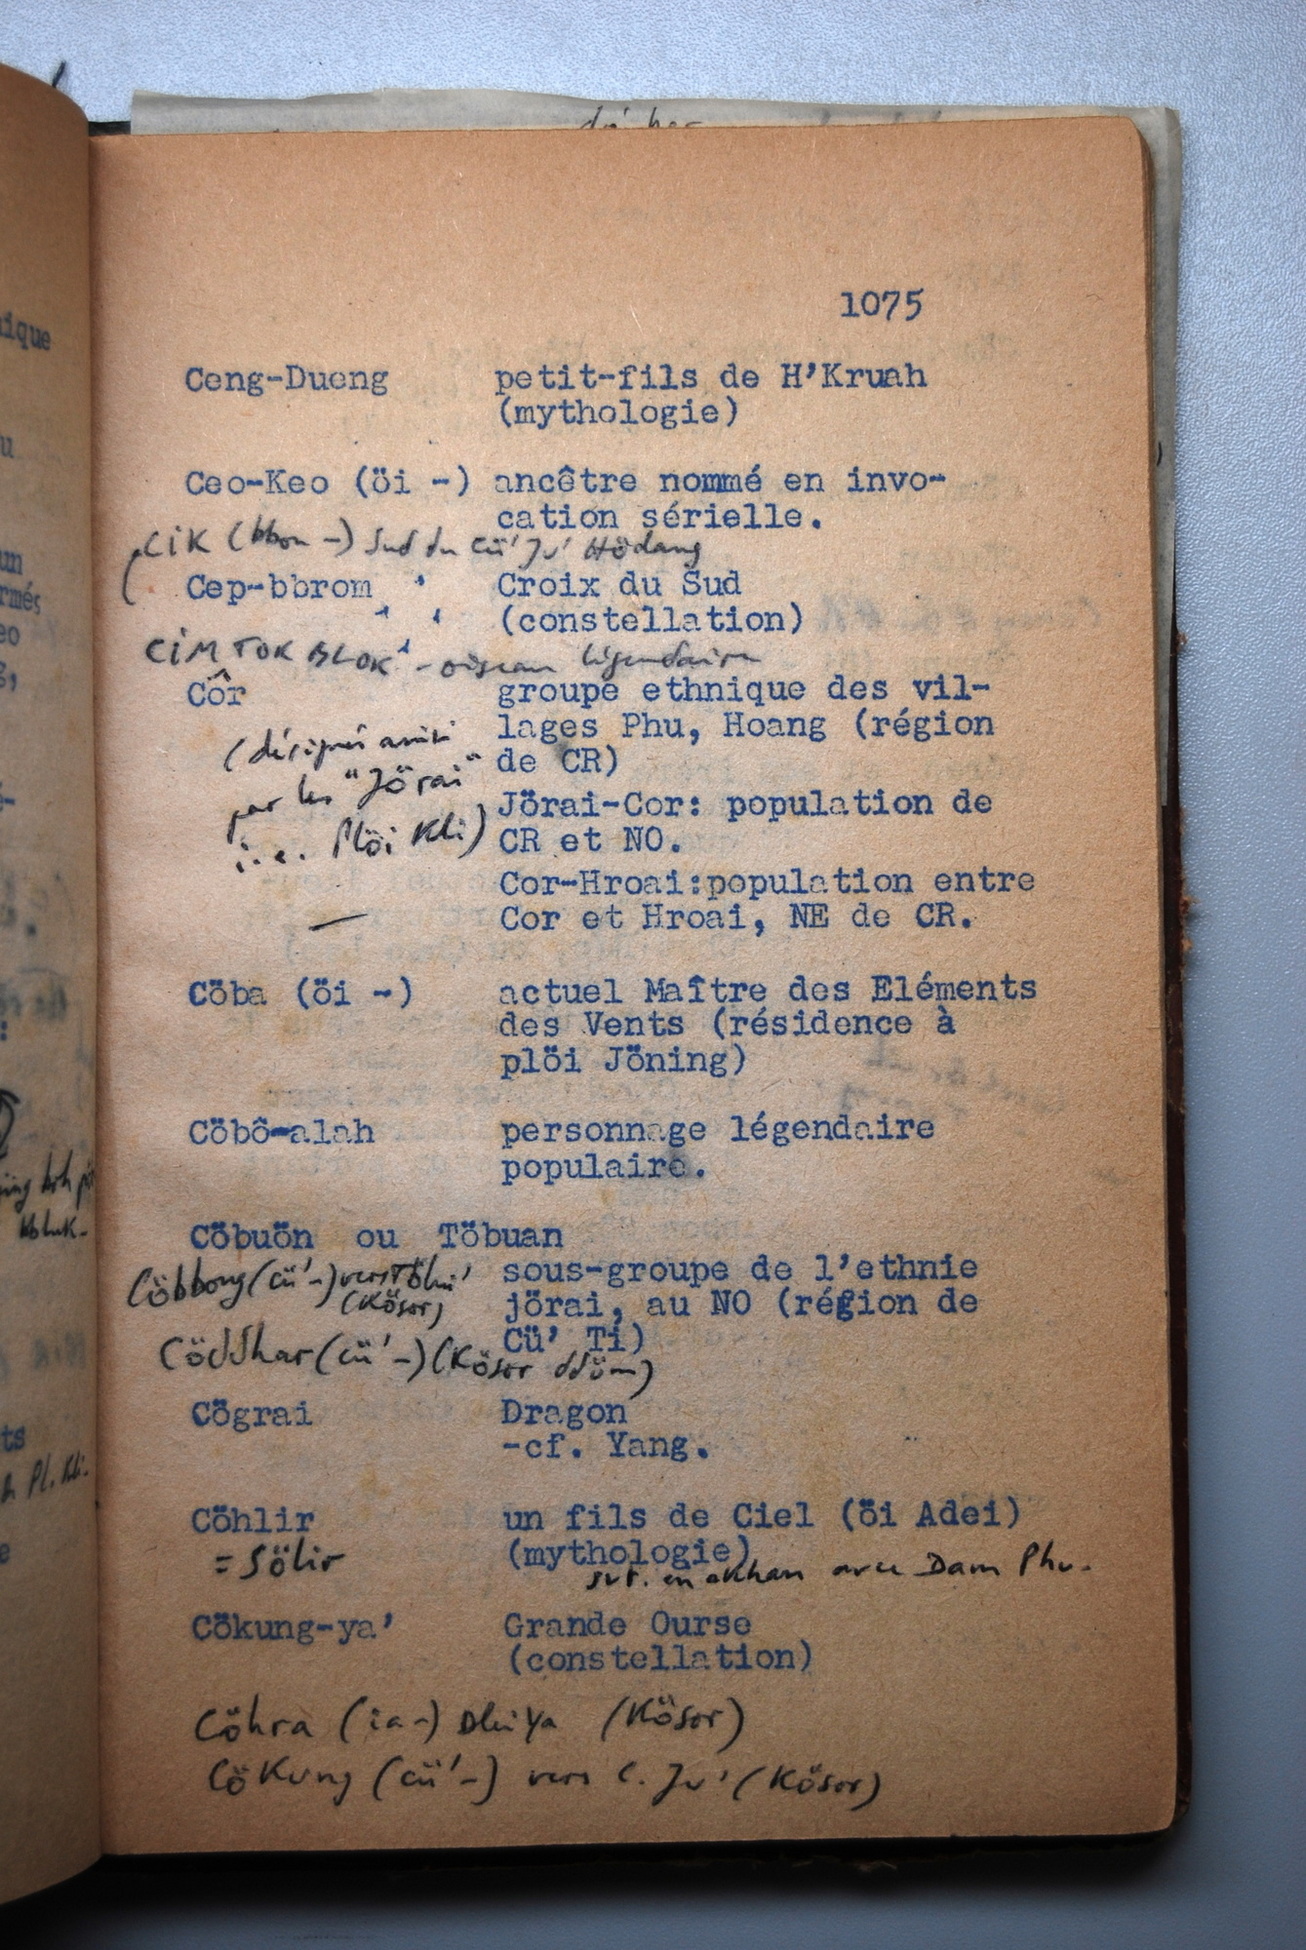 1075
Ceng-Dueng petit-fils de H'Kruah
(mythologie)
Ceo-Keo (öi -) ancêtre nommé en invo-
cation sérielle.
CiK (bbon -) Sud du Cü' Ju' Hödang
Cep-bbrom Croix du Sud
(constellation)
CIM TOK BLOK - oiseau légendaire
Côr groupe ethnique des vil-
lages Phu, Hoang (région
de CR)
(désignés ainsi
par les "Jörai"
i.e. Plöi Kli)
Jörai-Cor: population de
CR et NO.
Cor-Hroai:population entre
Cor et Hroai, NE de CR.
Cöba (öi -) actuel Maître des Eléments
des Vents (résidence à
plöi Jöning)
Cöbô-alah personnage légendaire
populaire.
Cöbuön ou Töbuan
sous-groupe de l'ethnie
jörai, au NO (région de
Cü' Ti)
Cöbbong (cü' -) vers
(Kösor)
Cöddhar (cü' -) (Kösor ddöm)
Cögrai Dragon
-cf. Yang.
Cöhlir un fils de Ciel (öi Adei)
(mythologie)
= Sölir
svt. en akhan avec Dam Phu.
Cökung-ya' Grande Ourse
(constellation)
Cöhra (ia -) Dleiya (Kösor)
Cökung (cü' -) vers C. Ju' (Kösor)
nique
u
un
rmés
eo
g,
ts
Pl. Kli.
e